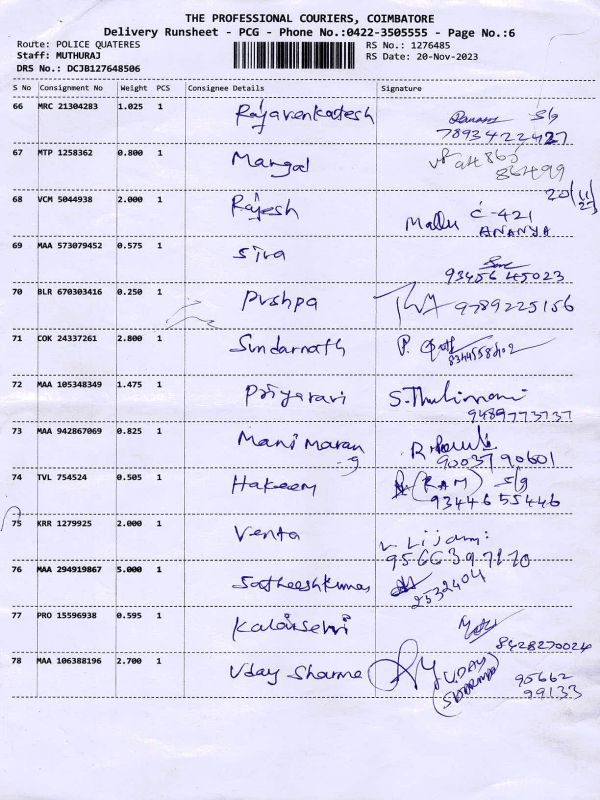 THE PROFESSIONAL COURIERS, COIMBATORE
Delivery Runsheet - PCG - Phone No.:0422-3505555 - Page No.:6
Route: POLICE QUATERES RS No.: 1276485
Staff: MUTHURAJ RS Date: 20-Nov-2023
DRS No.: DCJB127648506
S No Consignment No Weight PCS Consignee Details Signature
66 MRC 21304283 1.025 1 Rajavenkatesh
7893422427
67 MTP 1258362 0.800 1 Mangal
86499
20/11/23
68 VCM 5044938 2.000 1 Rajesh C-421
ANANYA
69 MAA 573079452 0.575 1 Siva
9345645023
70 BLR 670303416 0.250 1 Pushpa 9789225156
71 COK 24337261 2.800 1 Sundarnath P.
8344558202
72 MAA 105348349 1.475 1 Priyaravi S.
9489773737
73 MAA 942867069 0.825 1 Manimaran R.
9003790601
74 TVL 754524 0.505 1 Hakeem (RAM) S/g
9344655446
75 KRR 1279925 2.000 1 Venta
9566397170
76 MAA 294919867 5.000 1 Satheeshkumar
2532404
77 PRO 15596938 0.595 1 Kalaiselvi
8428270024
78 MAA 106388196 2.700 1 Uday Sharma (U.DAY
SHARMA) 95662
99133